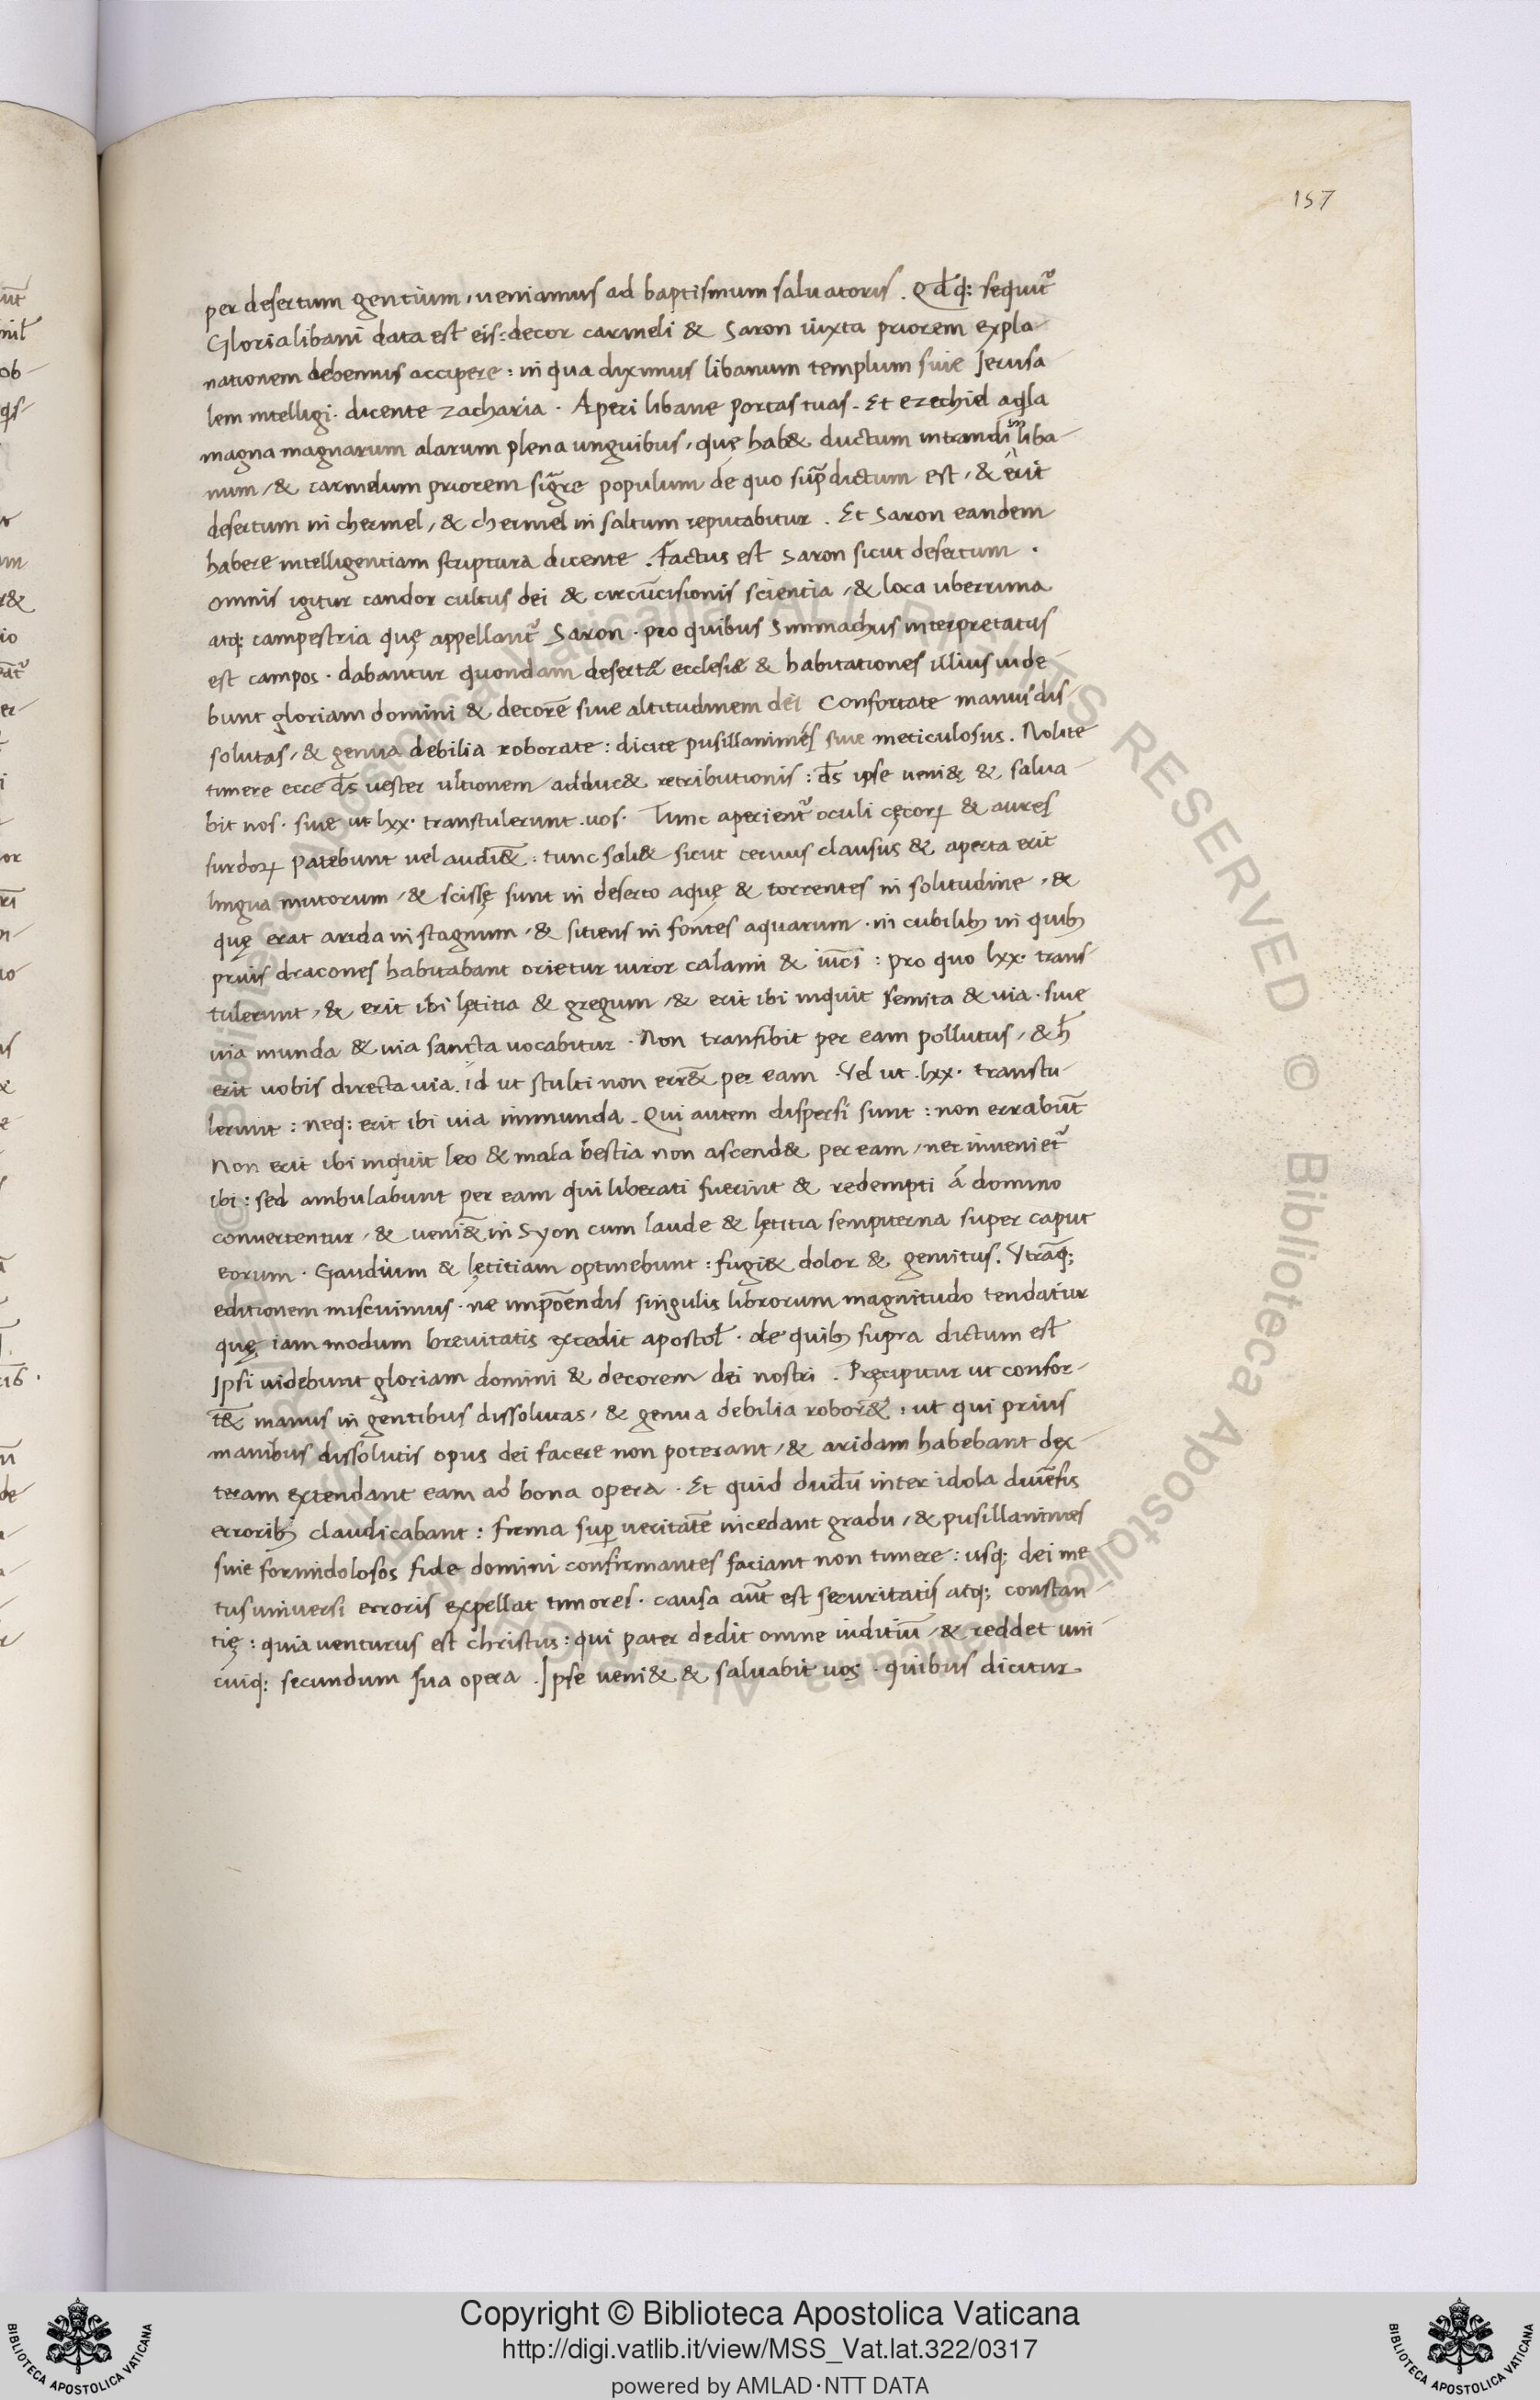 157
per desertum gentium, ueniamus ad baptismum saluatoris. Qd̄q; sequit᷑
Gloria libani data est eis: decor carmeli & Saron iuxta priorem expla-
nationem debemus accipere: in qua diximus libanum templum siue Jerusa
lem intelligi. dicente zacharia. Aperi libane portas tuas. Et ezechiel aqla
magna magnarum alarum plena unguibus, quę hab& ductum intrandi in liba-
num, & carmelum priorem sigr̄e populum de quo sup̄ dictum est, & erit
desertum in chermel, & chermel in saltum reputabitur. Et Saron eandem
habere intelligentiam scriptura dicente. Factus est Saron sicut desertum.
omnis igitur candor cultus dei & circūcisionis scientia, & loca uberrima
atq; campestria quę appellant᷑ Saron. pro quibus Simmachus interpretatus
est campos. dabantur quondam desertæ ecclesiæ & habitationes illius uide-
bunt gloriam domini & decorē siue altitudinem dei Confortate manus dis-
solutas, & genua debilia roborate: dicite pusillanimes siue meticulosus. Nolite
timere ecce d̄s uester ultionem adduc& retributionis: d̄s ipse ueni& & salua-
bit nos. siue ut lxx. transtulerunt. uos. Tunc aperient᷑ oculi cęcoꝝ & aures
surdoꝝ patebunt uel audi&̄: tunc sali& sicut ceruus clausus & aperta erit
lingua mutorum, & scissę sunt in deserto aquę & torrentes in solitudine, &
quę erat arida in stagnum, & sitiens in fontes aquarum. in cubilibȝ in quibȝ
prius dracones habitabant orietur uiror calami & iūci: pro quo lxx. trans-
tulerunt, & erit ibi lętitia & gregum, & erit ibi inquit semita & uia. siue
uia munda & uia sancta uocabitur. Non transibit per eam pollutus, & h̄
erit uobis directa uia. id ut stulti non err&̄ per eam. Vel ut. lxx. transtu-
lerunt: neq; erit ibi uia immunda. Qui autem dispersi sunt: non errabūt
Non erit ibi inquit leo & mala bestia non ascend& per eam, nec inueniet᷑
ibi: sed ambulabunt per eam qui liberati fuerint & redempti á domino
conuertentur, & ueni&̄ in Syon cum laude & lętitia sempiterna super caput
eorum. Gaudium & lętitiam optinebunt: fugi& dolor & gemitus. Vtrāq;
editionem miscuimus. ne impōendis singulis librorum magnitudo tendatur
quę iam modum breuitatis excedit apostoł. de quibȝ supra dictum est
Ipsi uidebunt gloriam domini & decorem dei nostri. Pręcipitur ut confor-
t&̄ manus in gentibus dissolutas, & genua debilia robor&̄: ut qui prius
manibus dissolutis opus dei facere non poterant, & aridam habebant dex-
teram extendant eam ad bona opera. Et quid dudū inter idola diuēsis
erroribȝ claudicabant: firma sup ueritatē incedant gradu, & pusillanimes
siue formidolosos fide domini confirmantes faciant non timere: usq; dei me
tus uniuersi erroris expellat timores. causa aūt est securitatis atq; constan-
tię: quia uenturus est christus: qui pater dedit omne iuditiū, & reddet uni-
cuiq; secundum sua opera. Ipse ueni& & saluabit uos. quibus dicitur
Copyright © Biblioteca Apostolica Vaticana
http://digi.vatlib.it/view/MSS_Vat.lat.322/0317
powered by AMLAD·NTT DATA